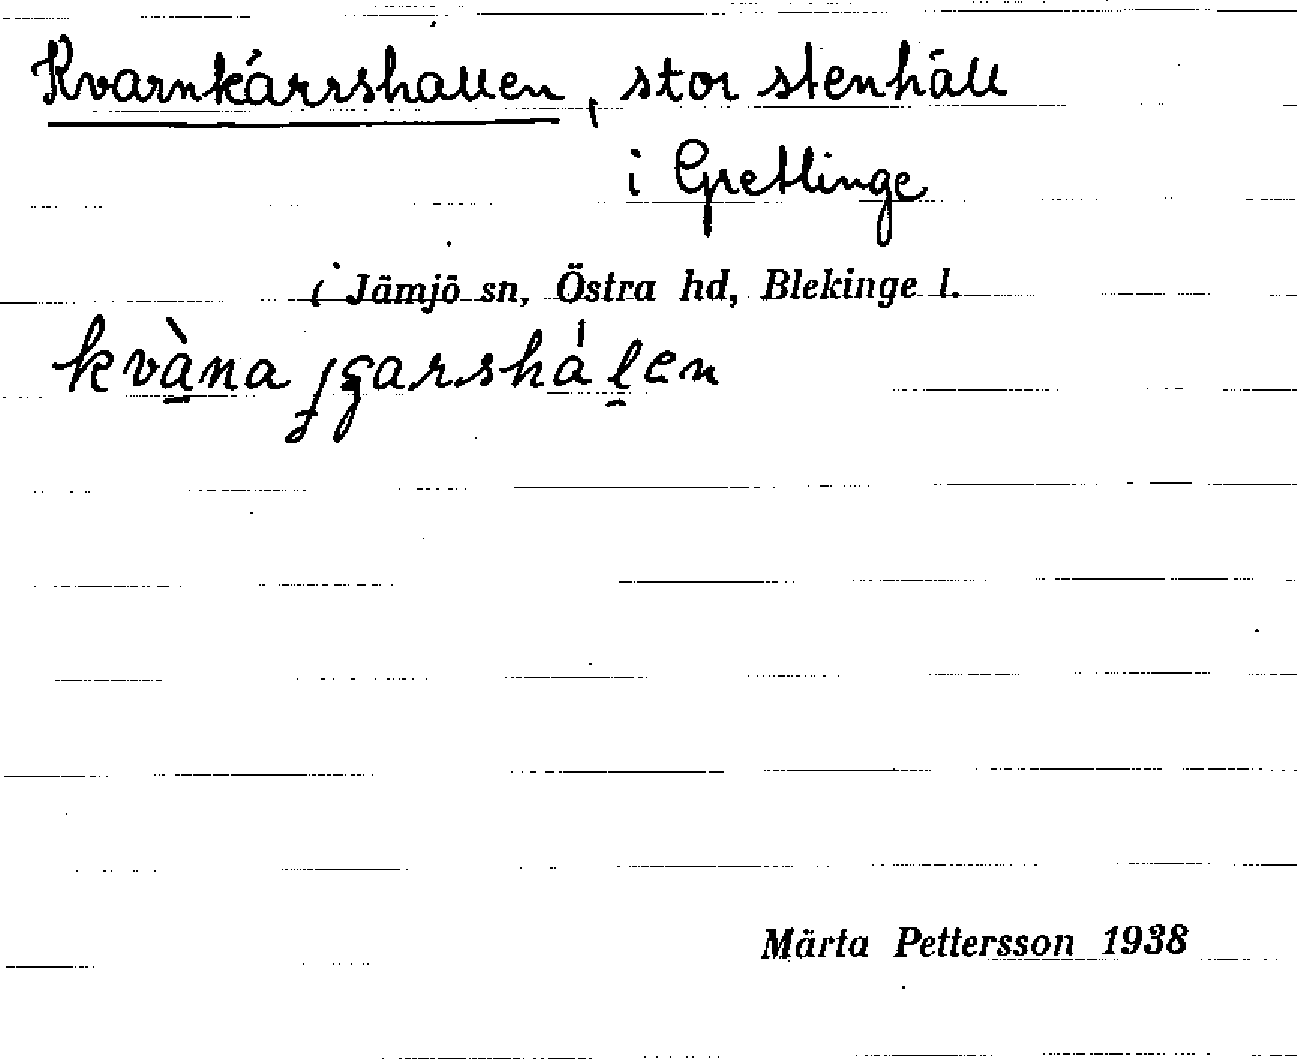 Kvarnkärrshallen, stor stenhäll
i Gretlinge
i Jämjö sn, Östra hd, Blekinge l.
Märta Pettersson 1938